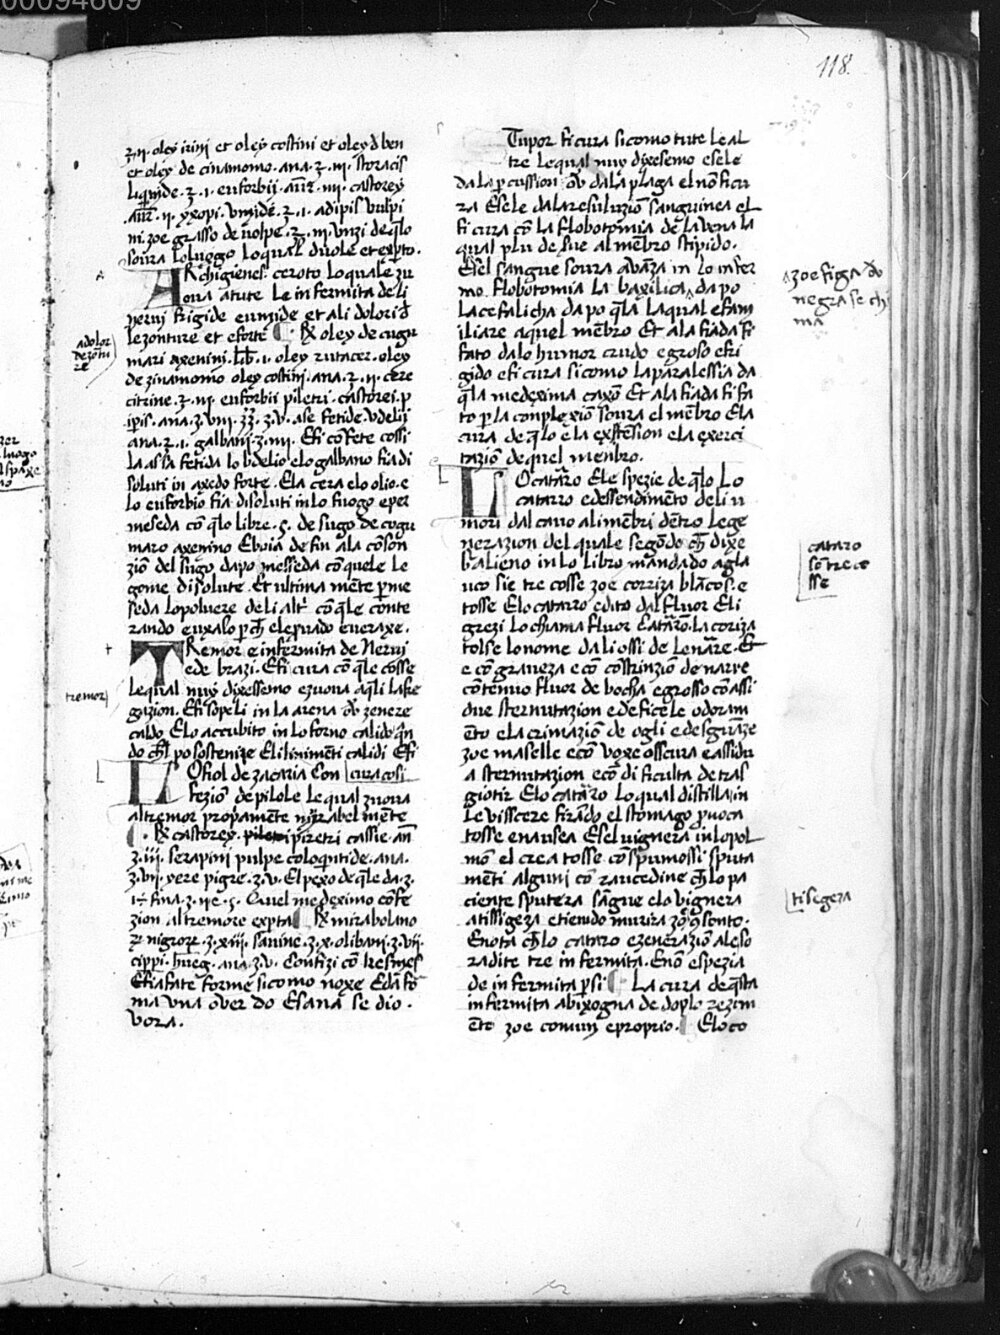 00094609
118.
ʒ. ii. oley irini et oley costini et oley d ben
et oley de cinamomo. ana. ʒ. iii. storacis
liquide. ʒ. i. euforbii. aur̄. iiii. castorey
aur̄. ii. yxopi. umide. ʒ. i. adipis vulpi
ni. zoe grasso de volpe. ʒ. iii. vnzi de q̄lo
soura lo luogo lo qual duole et exp̄to.
ARchigienes. ceroto lo quale zu
oua a tute le infermita de li
nerui frigide e umide et ali dolori d̄
le zonture et e forte ¶ ℞ oley de cugu
mari axenini. lb̄. i. oley rutacei. oley
de zinamomo oley costini. ana. ʒ. ii. cere
citrine. ʒ. iii. euforbii piletri. castorei. p
ip̄is. ana. ʒ. viii. ʒʒ. ʒ. v. ase fetide. vdelii
ana. ʒ. i. galbani. ʒ. iiii. E fi cōfete cossi
la assa fetida lo bdelio e lo galbano fia di
soluti in axedo forte. E la cera e lo olio. e
lo euforbio fia disoluti in lo fuogo e per
meseda cō q̄lo libre. 5. de sugo de cugu
maro axenino E boia de fin a la cōson
ziō del sugo da po messeda con quele le
gome disolute. Et ultima mēte p̄ me
seda lo poluere de li altr̄ cō q̄le conte
rando e vxalo p̄ch̄ el e p̄uado e ueraxe.
TRemor e infermita de Nerui
e de brazi. E fi cura cō q̄le cosse
le qual nuy dixessemo e zuoua a q̄li la fre
gazion. E fi sopeli in la arena ou zenere
caldo. E lo accubito in lo forno calido q̄n
do ch̄l po sostenire E li linimēti calidi E fi
LOhiol de zacaria Con | cura cosi
fezion de pilole le qual zuoua
al tremor propiamēte mirabel mēte
¶. ℞ castorey. piretri cassie. an̄
ʒ. iii. serapini pulpe coloquitide. ana.
ʒ. vii. yere pigre. ʒ. v. El pexo de q̄le da. ʒ.
i. fina. ʒ. ii e. 5. Quel medeximo cōfe
zion al tremore exp̄ta ¶ ℞ mirabolano
ꝝ nigroꝝ. ʒ. xiii. sauine. ʒ. x. olibani. ʒ. vii.
cippi. hūeg. ana. ʒ. v. Confizi cō
E fia fate forme si como noxe E da fo
ma vna ouer do E sana se dio.
vora.
Tupor fi cura si como tute le al
tre le qual nuy dixesemo e se le
da la p̄cussion ou da la plaga el nō fi cu
ra E se le da la resoluziō sanguinea el
fi cura cō la flobotomia de la vena la
qual plu de sue al mēbro stipido.
E se l sangue soura auāza in lo infer
mo flobotomia la baxilica da po
la cefalicha da po q̄la la qual e fam
iliare a quel mēbro Et a la fiada fi
fato da lo humor crudo e groso e fri
gido e fi cura si como la paralessia da
q̄la medexima caxō Et a la fiada fi fa
to p̄ la complexiō soura el mēbro E la
cura de q̄lo e la exstension e la exerci
taziō de quel menbro.
LO cataro El e spezie de q̄lo Lo
catarro e dessendimēto de li v
mori dal cauo ali mēbri dētro le ge
nerazion del quale segōdo ch̄ dixe
Galieno in lo libro mandado a gla
uco si e tre cosse zoe corriza blācos. e
tosse E lo catarro e dito dal fluor E li
grezi lo chiama fluor Catarō. la coriza
tolse lo nome da li ossi de le nare. Et
e cō graueza e cō costrinziō de nare
cōtenuo fluor de bocha e grosso cō assi
due sternutazion e de fice le odoram
ēto e la crimaziō de ogli e de sguāze
zoe maselle e cō voxe osscura e assidu
a sternutazion e cō di ficulta de tras
giotir E lo catarro lo qual distilla in
le visscere firādo el stomago p̄uoca
tosse e nausea E se l vignera in lo pol
mō el crea tosse cō spumossi sputa
mēti alguni cō raucedine ch̄ lo pa
ciente sputera sāgue e lo vignera
a tissigeza etiendo
E nota ch̄ lo cataro e zenerazio̅ a le so
radite tre infermita. E nō e spezia
de infermita p̄ si ¶ La cura de q̄sta
infermita abixogna de doplo rezim
ēto zoe comun e proprio. ¶ E lo co
a dolor
de zōtu
re
tremor
zoe figa
negra se ch
ma
cataro
sō tre co
sse
tisegeza